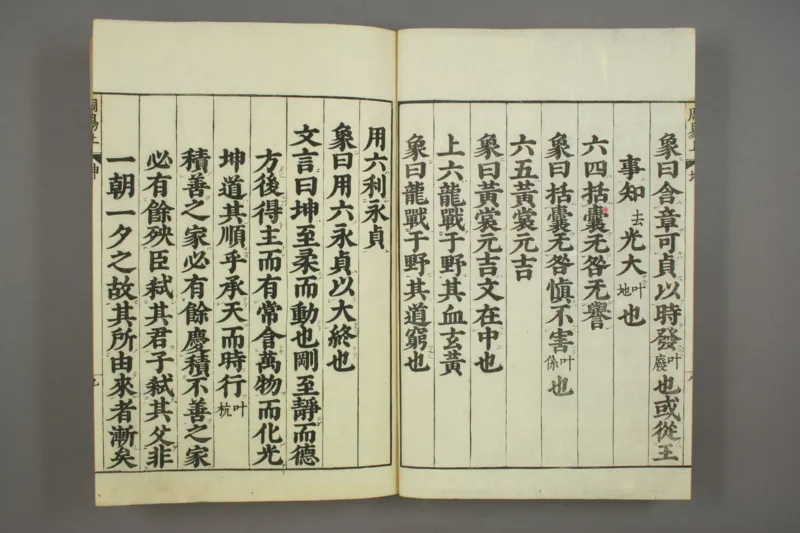 象曰含章可貞以時發叶廢也或從王
事知去光大叶地也
六四括囊无咎无譽
象曰括囊无咎愼不害叶係也
六五黃裳元吉
象曰黃裳元吉文在中也
上六龍戰于野其血玄黃
象曰龍戰于野其道窮也
用六利永貞
象曰用六永貞以大終也
文言曰坤至柔而動也剛至靜而德
方後得主而有常含萬物而化光
坤道其順乎承天而時行叶杭
積善之家必有餘慶積不善之家
必有餘殃臣弑其君子弑其父非
一朝一夕之故其所由來者漸矣
周易上
坤
九